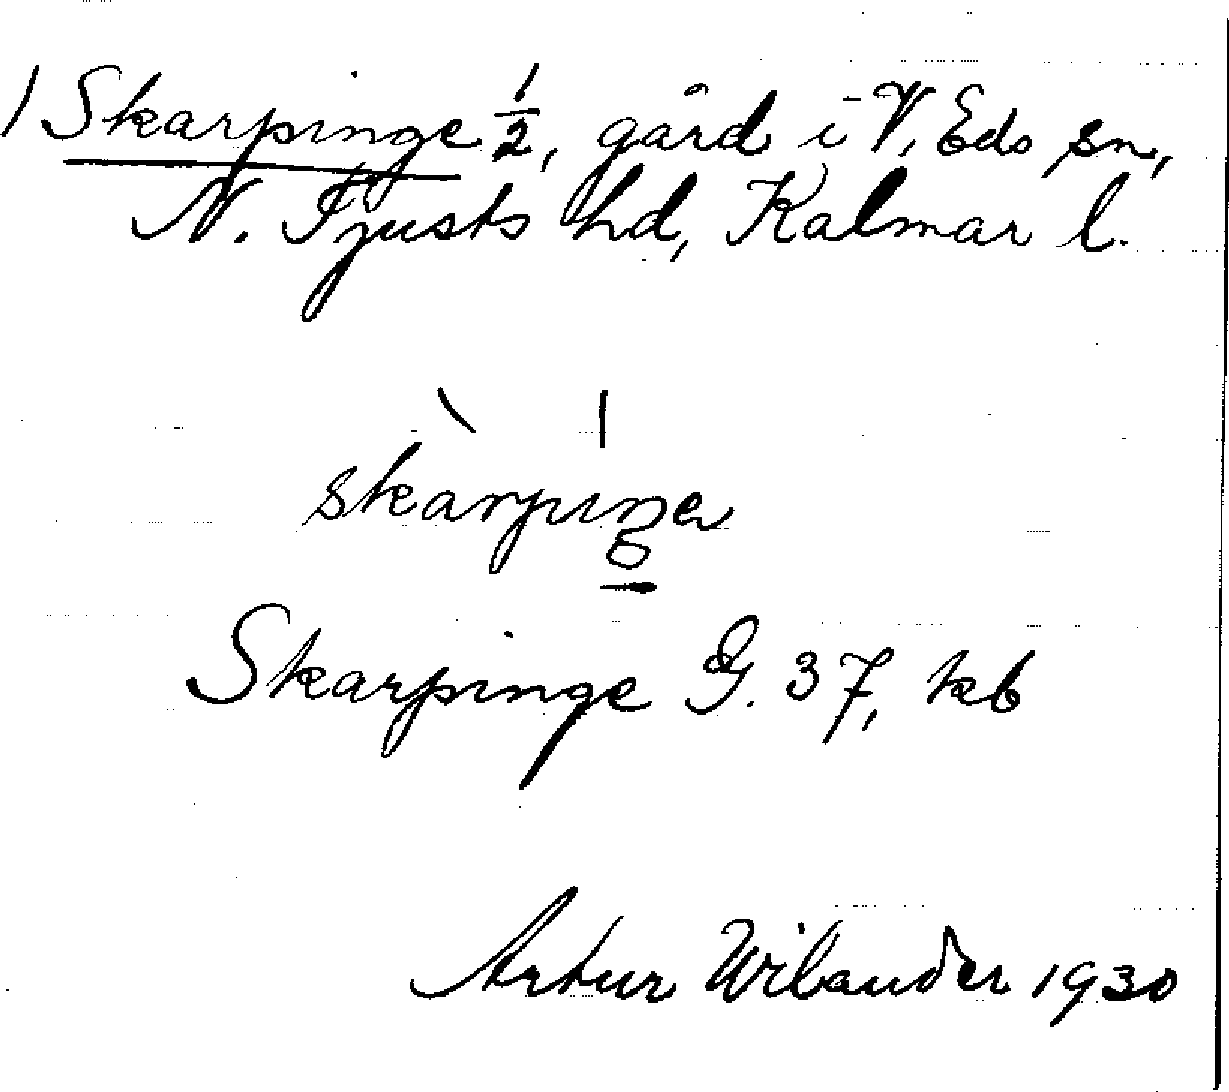 1 Skarpinge 1/2, gård i V. Eds sn,
N. Tjusts hd, Kalmar l.
skàrpiŋe
Skarpinge G. 37, kb
Artur Wilander 1930